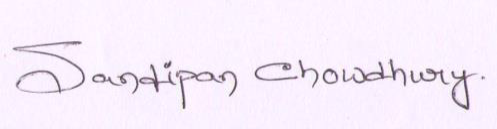 Sandipan Chowdhury.